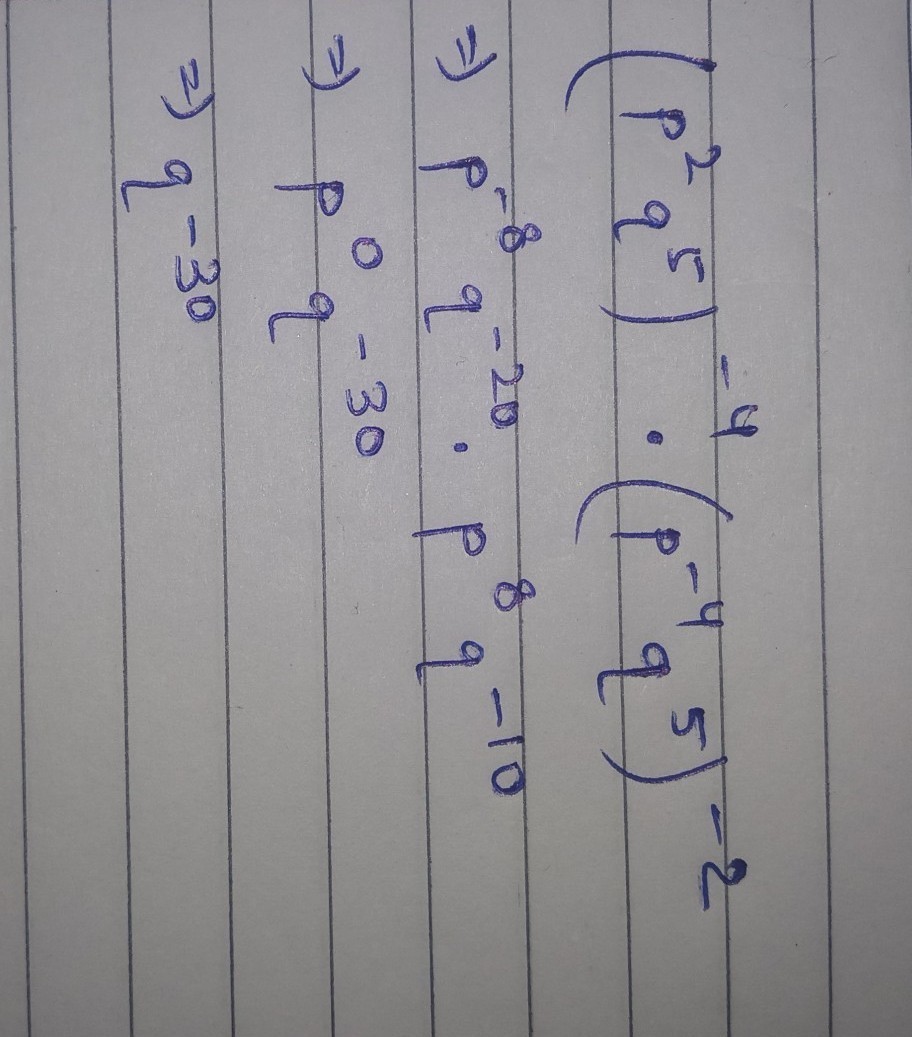 (p² q⁵)⁻⁴ · (p⁻⁴ q⁵)⁻²
⇒ p⁻⁸ q⁻²⁰ · p⁸ q⁻¹⁰
⇒ p⁰ q⁻³⁰
⇒ q⁻³⁰